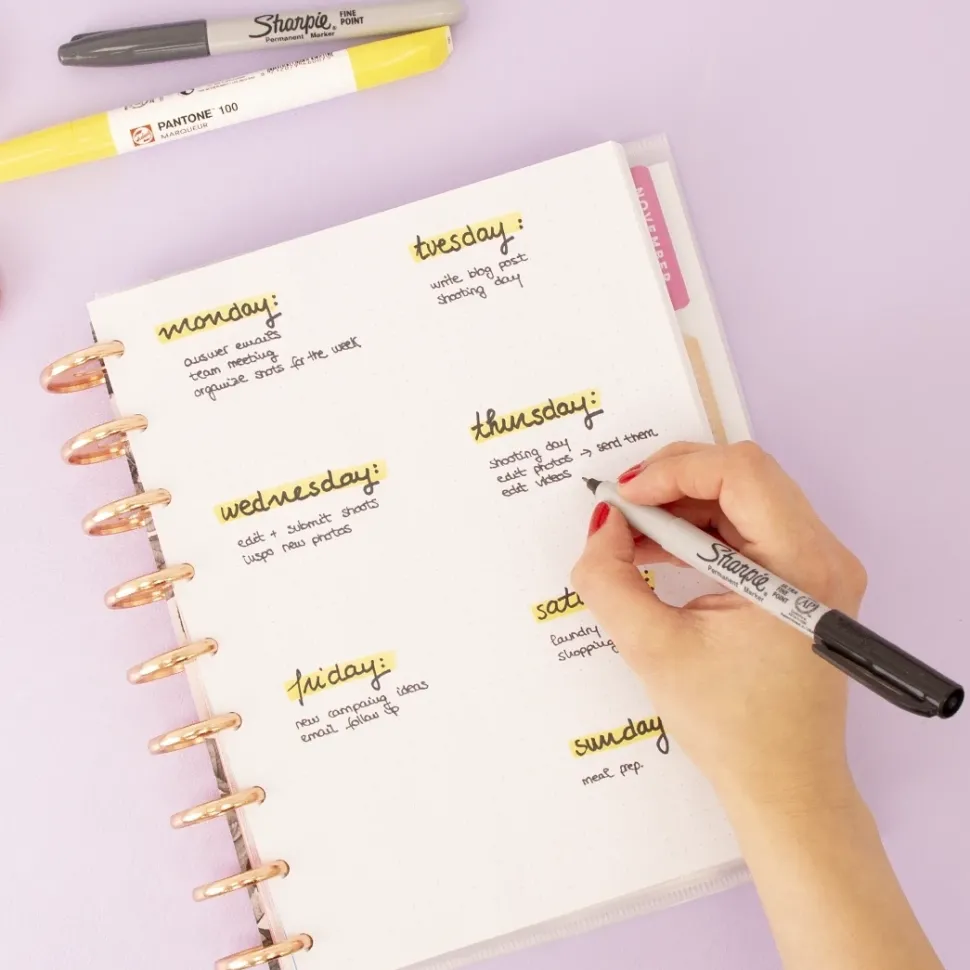 Sharpie® FINE POINT
Permanent Marker
PANTONE® 100
MARQUEUR
NOVEMBER
monday:
answer emails
team meeting
organize shots for the week
tuesday:
write blog post
shooting day
wednesday:
edit + submit shoots
inspo new photos
thursday:
shooting day
edit photos → send them
edit videos
friday:
new campaing ideas
email follow up
laundry
shopping
sunday
meal prep.
Sharpie®
Permanent Marker
ULTRA FINE POINT
AP